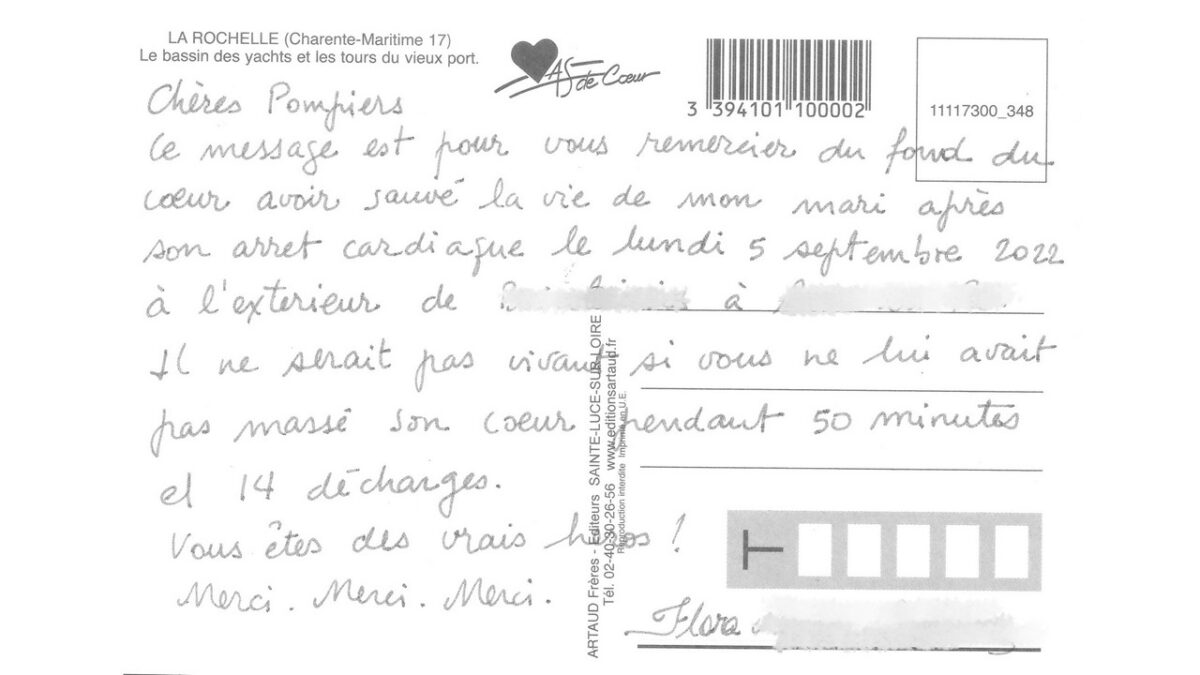 LA ROCHELLE (Charente-Maritime 17)
Le bassin des yachts et les tours du vieux port.
AS de Coeur
3 394101 100002
11117300_348
Chères Pompiers
Ce message est pour vous remercier du fond du
cœur avoir sauvé la vie de mon mari après
son arret cardiaque le lundi 5 septembre 2022
à l'exterieur de à
Il ne serait pas vivant si vous ne lui avait
pas massé son coeur pendant 50 minutes
et 14 décharges.
Vous êtes des vrais heros !
Merci. Merci. Merci.
Flora
ARTAUD Frères - Editeurs SAINTE-LUCE-SUR-LOIRE
Tél. 02-40-30-26-56 www.editionsartaud.fr
Reproduction interdite Imprimé en U.E.
T